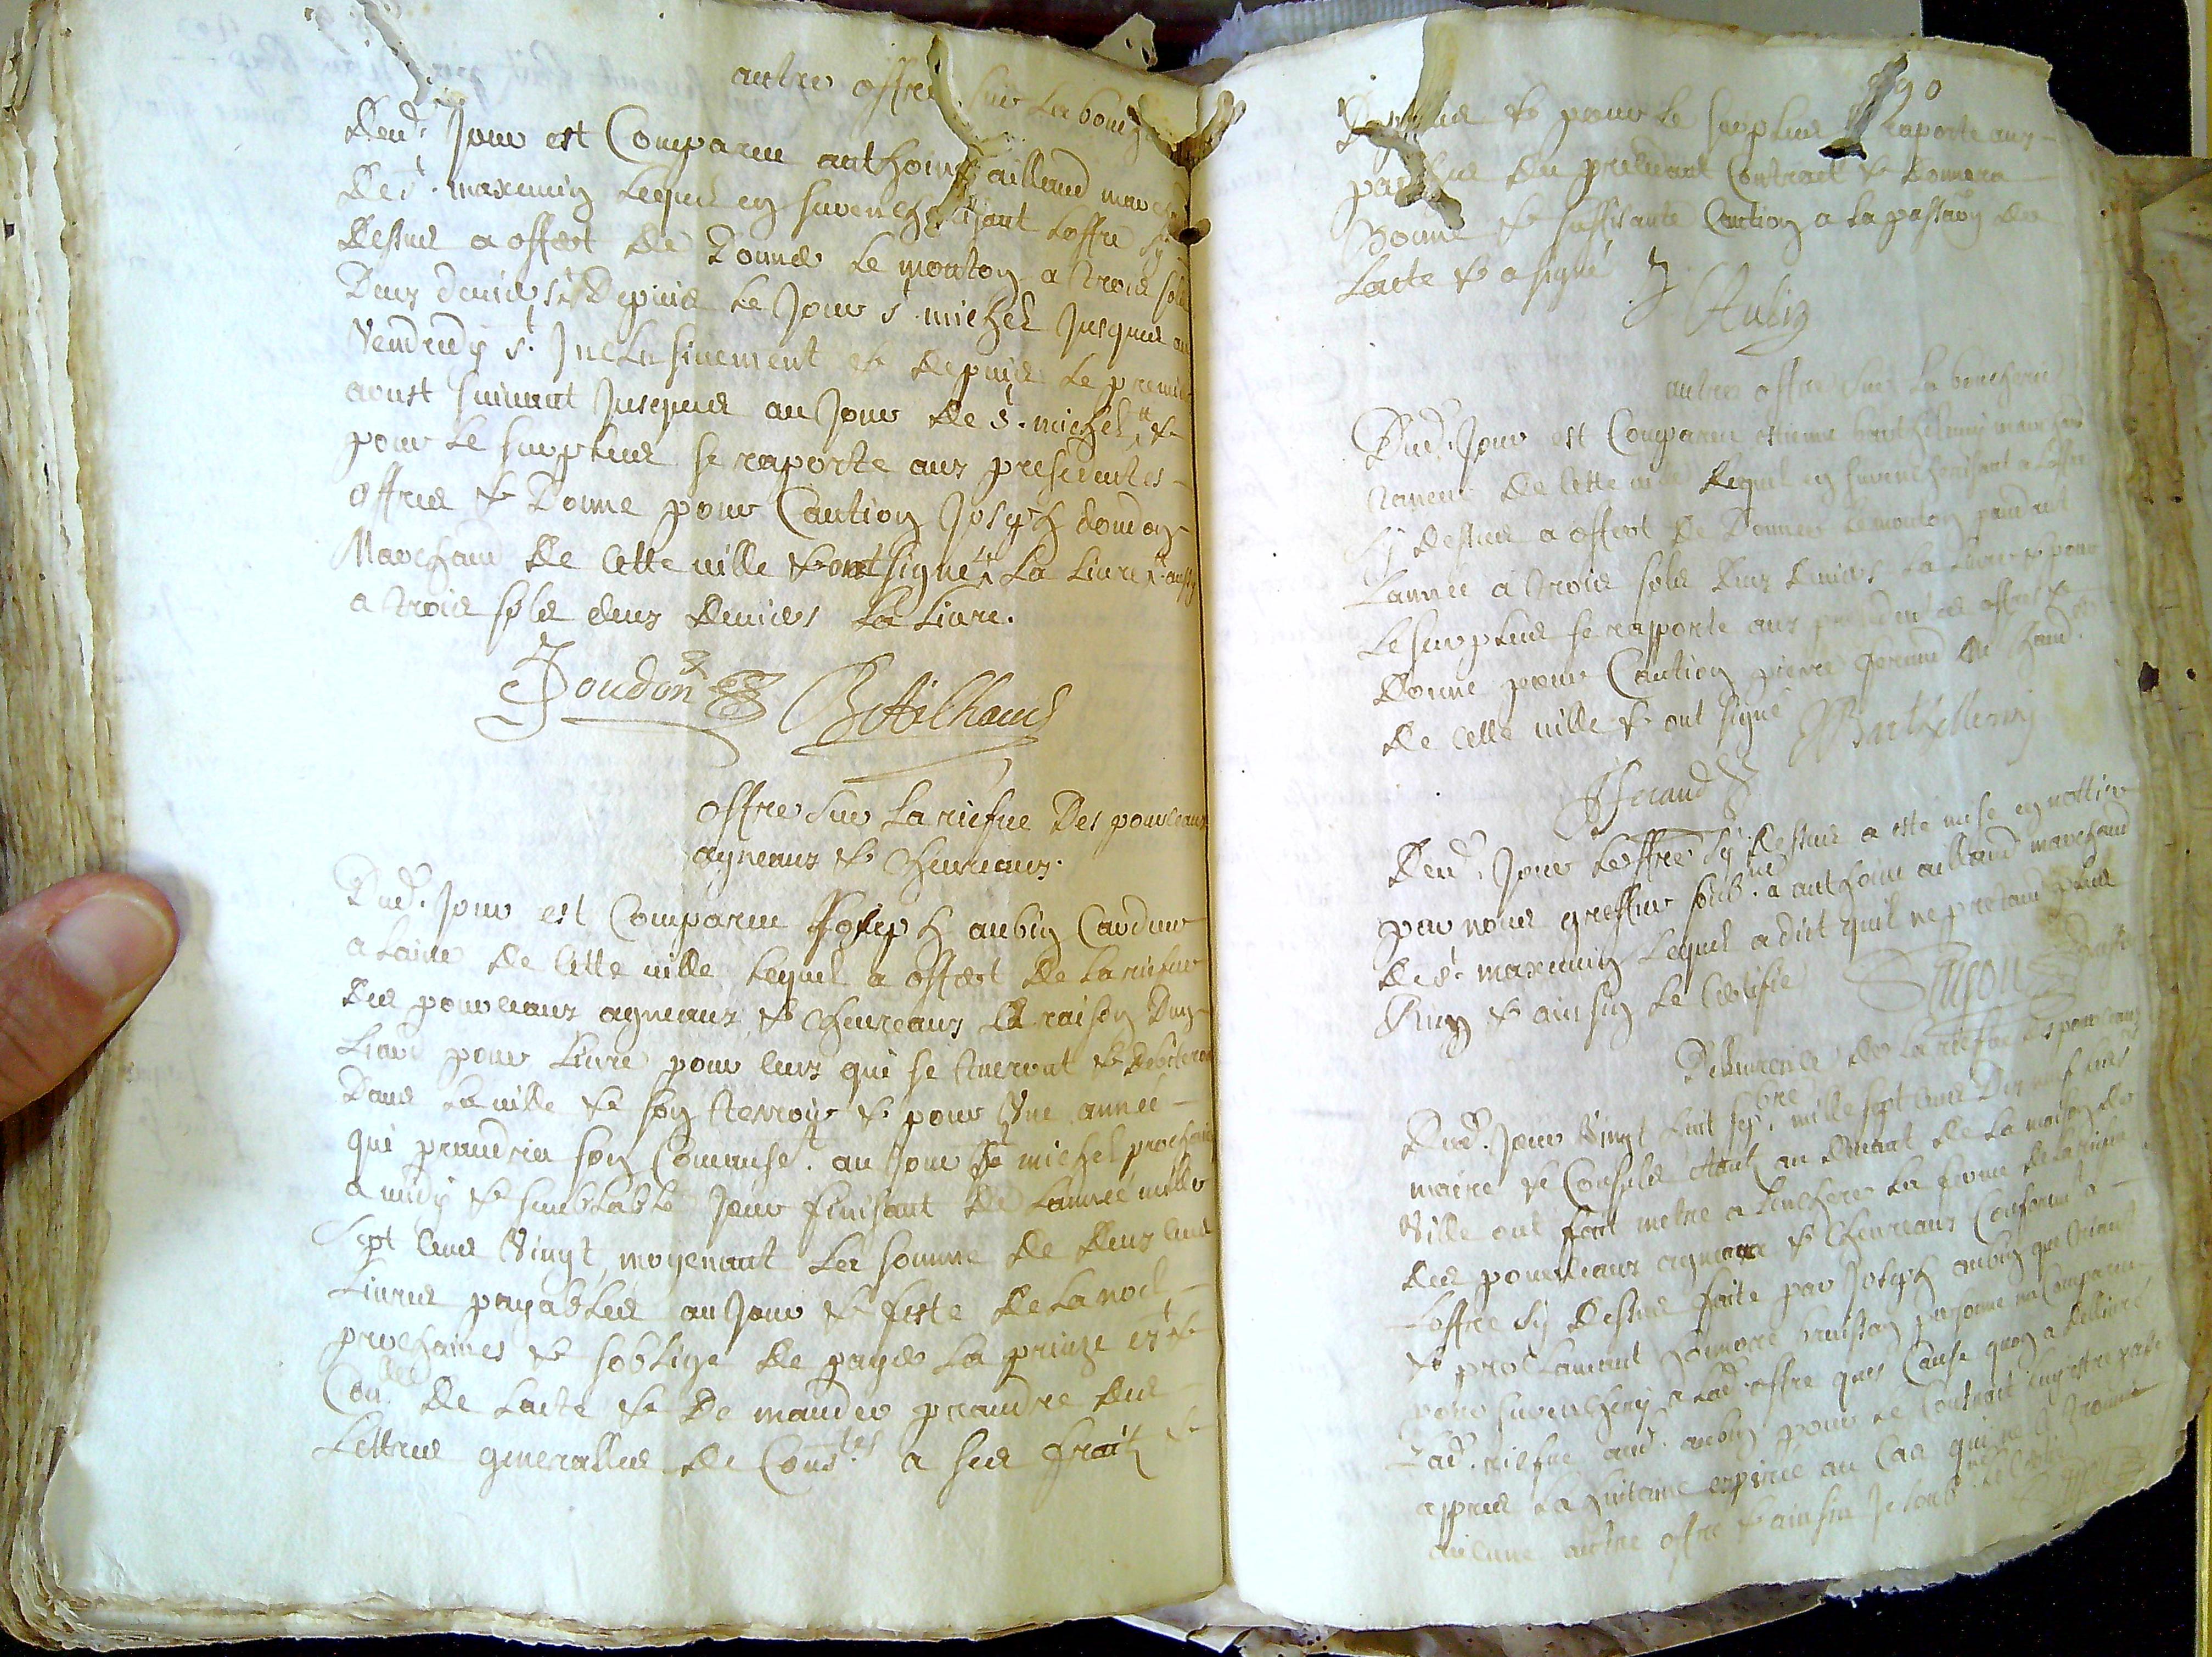 autre offre sur la bouch
Dud. Jour est Comparu anthoine ailland march
de st. maximin lequel en surencherissant loffre sy
dessus a offert de donner le mouton a trois sols
deux deniers depuis le Jour st. michel Jusques au
vendredy st. Inclusivement et depuis le premier
aoust suivant Jusques au Jour de st. michel et
pour le surplus se raporte aux presedentes
offres et donne pour Caution Joseph doudon
Marchand de cette ville et ont signé la livre aussy
a trois sols deux deniers la livre.
Doudon Ailhaud
offre sur la riefve des pourceaux
agneaux et chevreaux.
Dud. Jour est Comparu Joseph aubin Cardeur
a laine de cette ville lequel a offert de la riefve
des pourceaux agneaux et chevreaux a raison dun
liard pour livre pour ceux qui se tueront et debiteron
dans la ville et son terroir et pour une année
qui prandra son Comanse. au Jour st michel prochain
a midy et semblable Jour finisant de lannée mille
sept cens vingt, moyenant la somme de deux cens
livres payables au Jour et feste de la noel
prochaines et soblige de payer la prinze ext et
Con. de lacte et de mander prandre des
lettres generalles de Cons. a ses fraix et
90
et pour le surplus raporte aux
du presedant Contract et donnera
Bonne et suffisante Caution a la passation de
lacte et a signé
Aubin
autre offre sur la boucherie
Dud. Jour est Comparu estienne barthelemy marchand
taneur de cette ville lequel en surencherissant a loffre
sy dessus a offert de donner le mouton pendant
lannée a trois sols deux deniers la livre et pour
le surplus se rapporte aux presedentes offres et
donne pour Caution pierre feraud
de cette ville et ont signé Barthellemy
feraud
Dud. Jour loffre sy dessus a esté mise en nottice
par nous greffier soub. a anthoine ailland marchand
de st. maximin lequel a dict quil ne pretand plus
Rien et ainsin le Certifie
Delivrance de la riefve des pourceaux
Dud. Jour vingt huit sepbre. mille sept cens Dix neuf mes
maire et Consuls estant au devant de la maison de
ville ont fait metre a lenchere la ferme de la riefve
des pourceaux agneaux et chevreaux Conforment a
loffre sy dessus faite par Joseph aubin que criant
et proclamant honnoré personne na Comparu
pour surencherir a lad. offre ques Cause quon a delivré
lad. riefve aud. aubin pour le Contract luy estre passé
appres la huitaine expirée au cas quil ne sy trouve
aucune autre offre et ainsin Je soub.